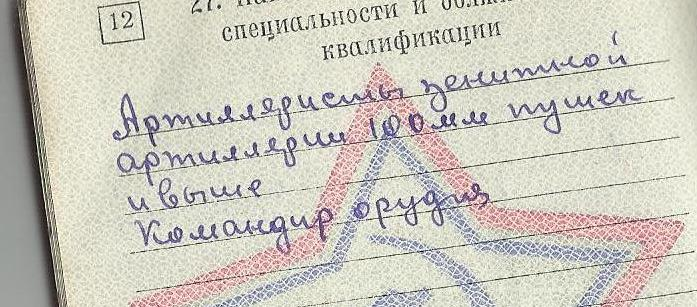 12
27.
специальности и
квалификации
Артиллеристы зенитной
артиллерии 100мм пушек
и выше
Командир орудия